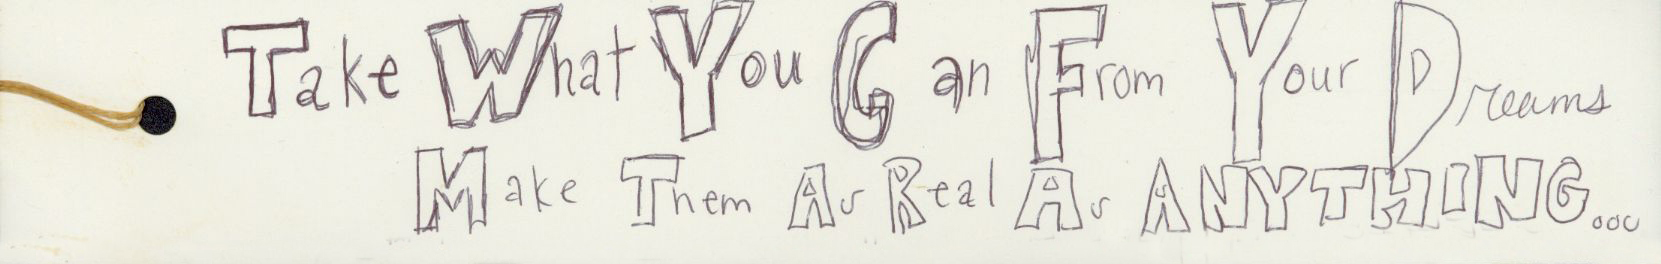 Take What You Can From Your Dreams
Make Them As Real As ANYTHING...